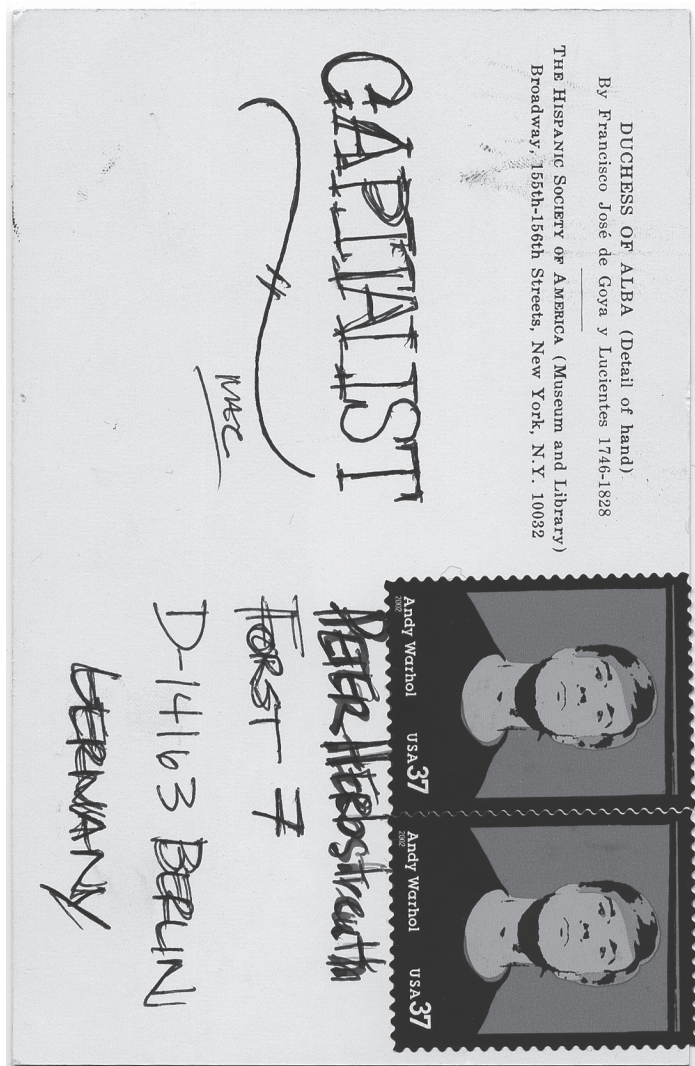 DUCHESS OF ALBA (Detail of hand)
By Francisco José de Goya y Lucientes 1746-1828
THE HISPANIC SOCIETY OF AMERICA (Museum and Library)
Broadway, 155th-156th Streets, New York, N.Y. 10032
CAPITALIST
Andy Warhol
2002
USA 37
Andy Warhol
2002
USA 37
PETER
FORST 7
D-14163 BERLIN
GERMANY